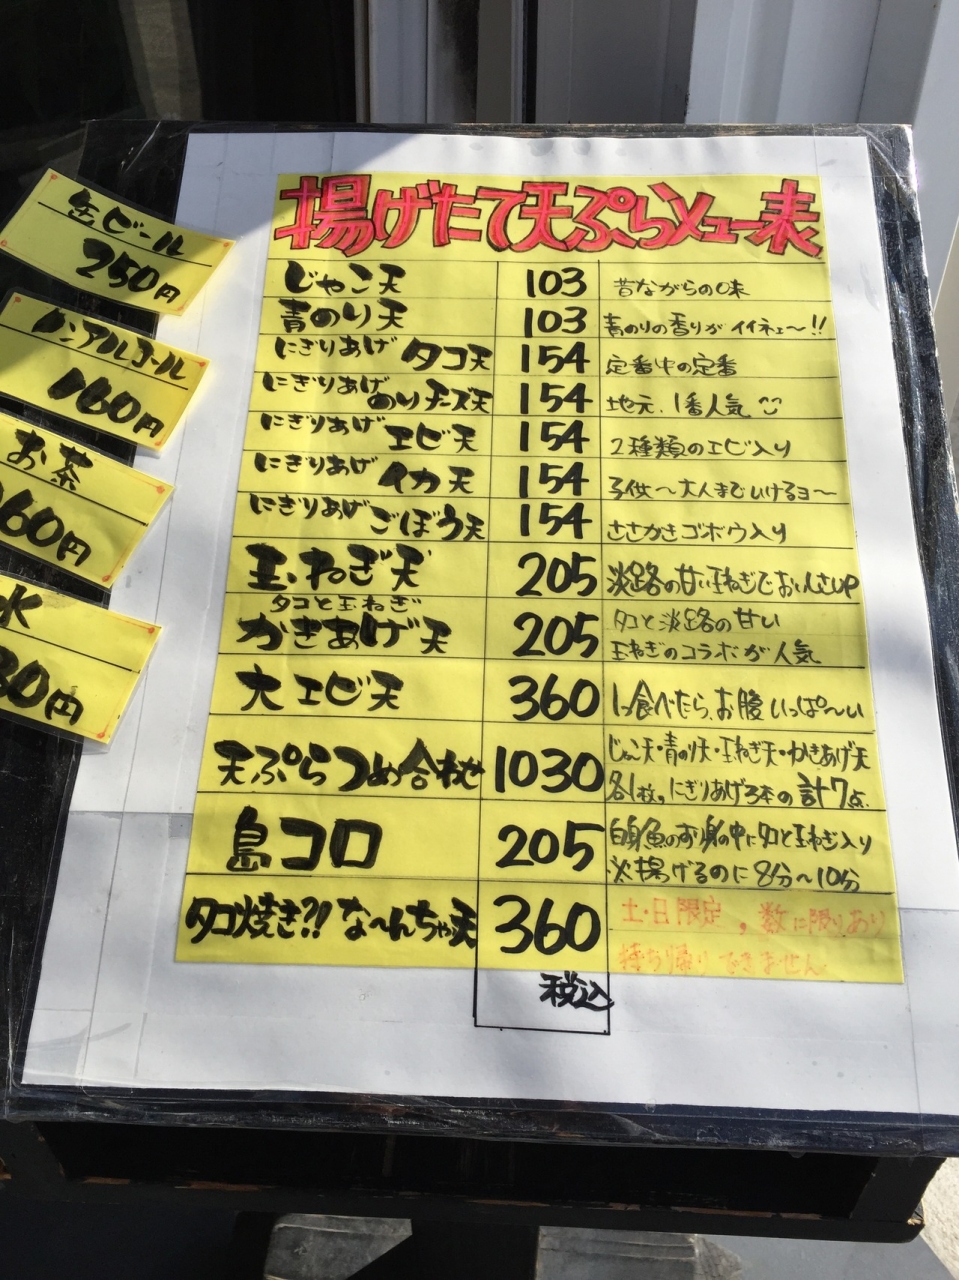 揚げたて天ぷらメニュー表
じゃこ天 103 昔ながらの味
青のり天 103 青のりの香りがイイネェ〜!!
にぎりあげ タコ天 154 定番中の定番
にぎりあげ のりチーズ天 154 地元、1番人気
にぎりあげ エビ天 154 2種類のエビ入り
にぎりあげ イカ天 154 子供〜大人までいけるヨ〜
にぎりあげ ごぼう天 154 ささがきゴボウ入り
玉ねぎ天 205 淡路の甘い玉ねぎでおいしさUP
タコと玉ねぎ
かきあげ天 205 タコと淡路の甘い
玉ねぎのコラボが人気
大エビ天 360 1つ食べたら、お腹いっぱ〜い
天ぷらつめ合わせ 1030 じゃこ天・青のり天・玉ねぎ天・かきあげ天
各1枚。にぎりあげ3本の計7点
島コロ 205 白身魚のお身の中にタコと玉ねぎ入り
※揚げるのに8分〜10分
タコ焼き?!な〜んちゃ天 360 土・日限定、数に限りあり
持ち帰りできません
税込
缶ビール
250円
ノンアルコール
160円
お茶
160円
水
30円